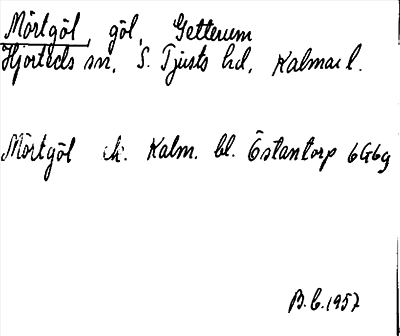 Mörtgöl, göl, Getterum
Hjorteds sn, S. Tjusts hd, Kalmar l.
Mörtgöl ek. Kalm. bl. Östantorp 6G6g
B.C.1957